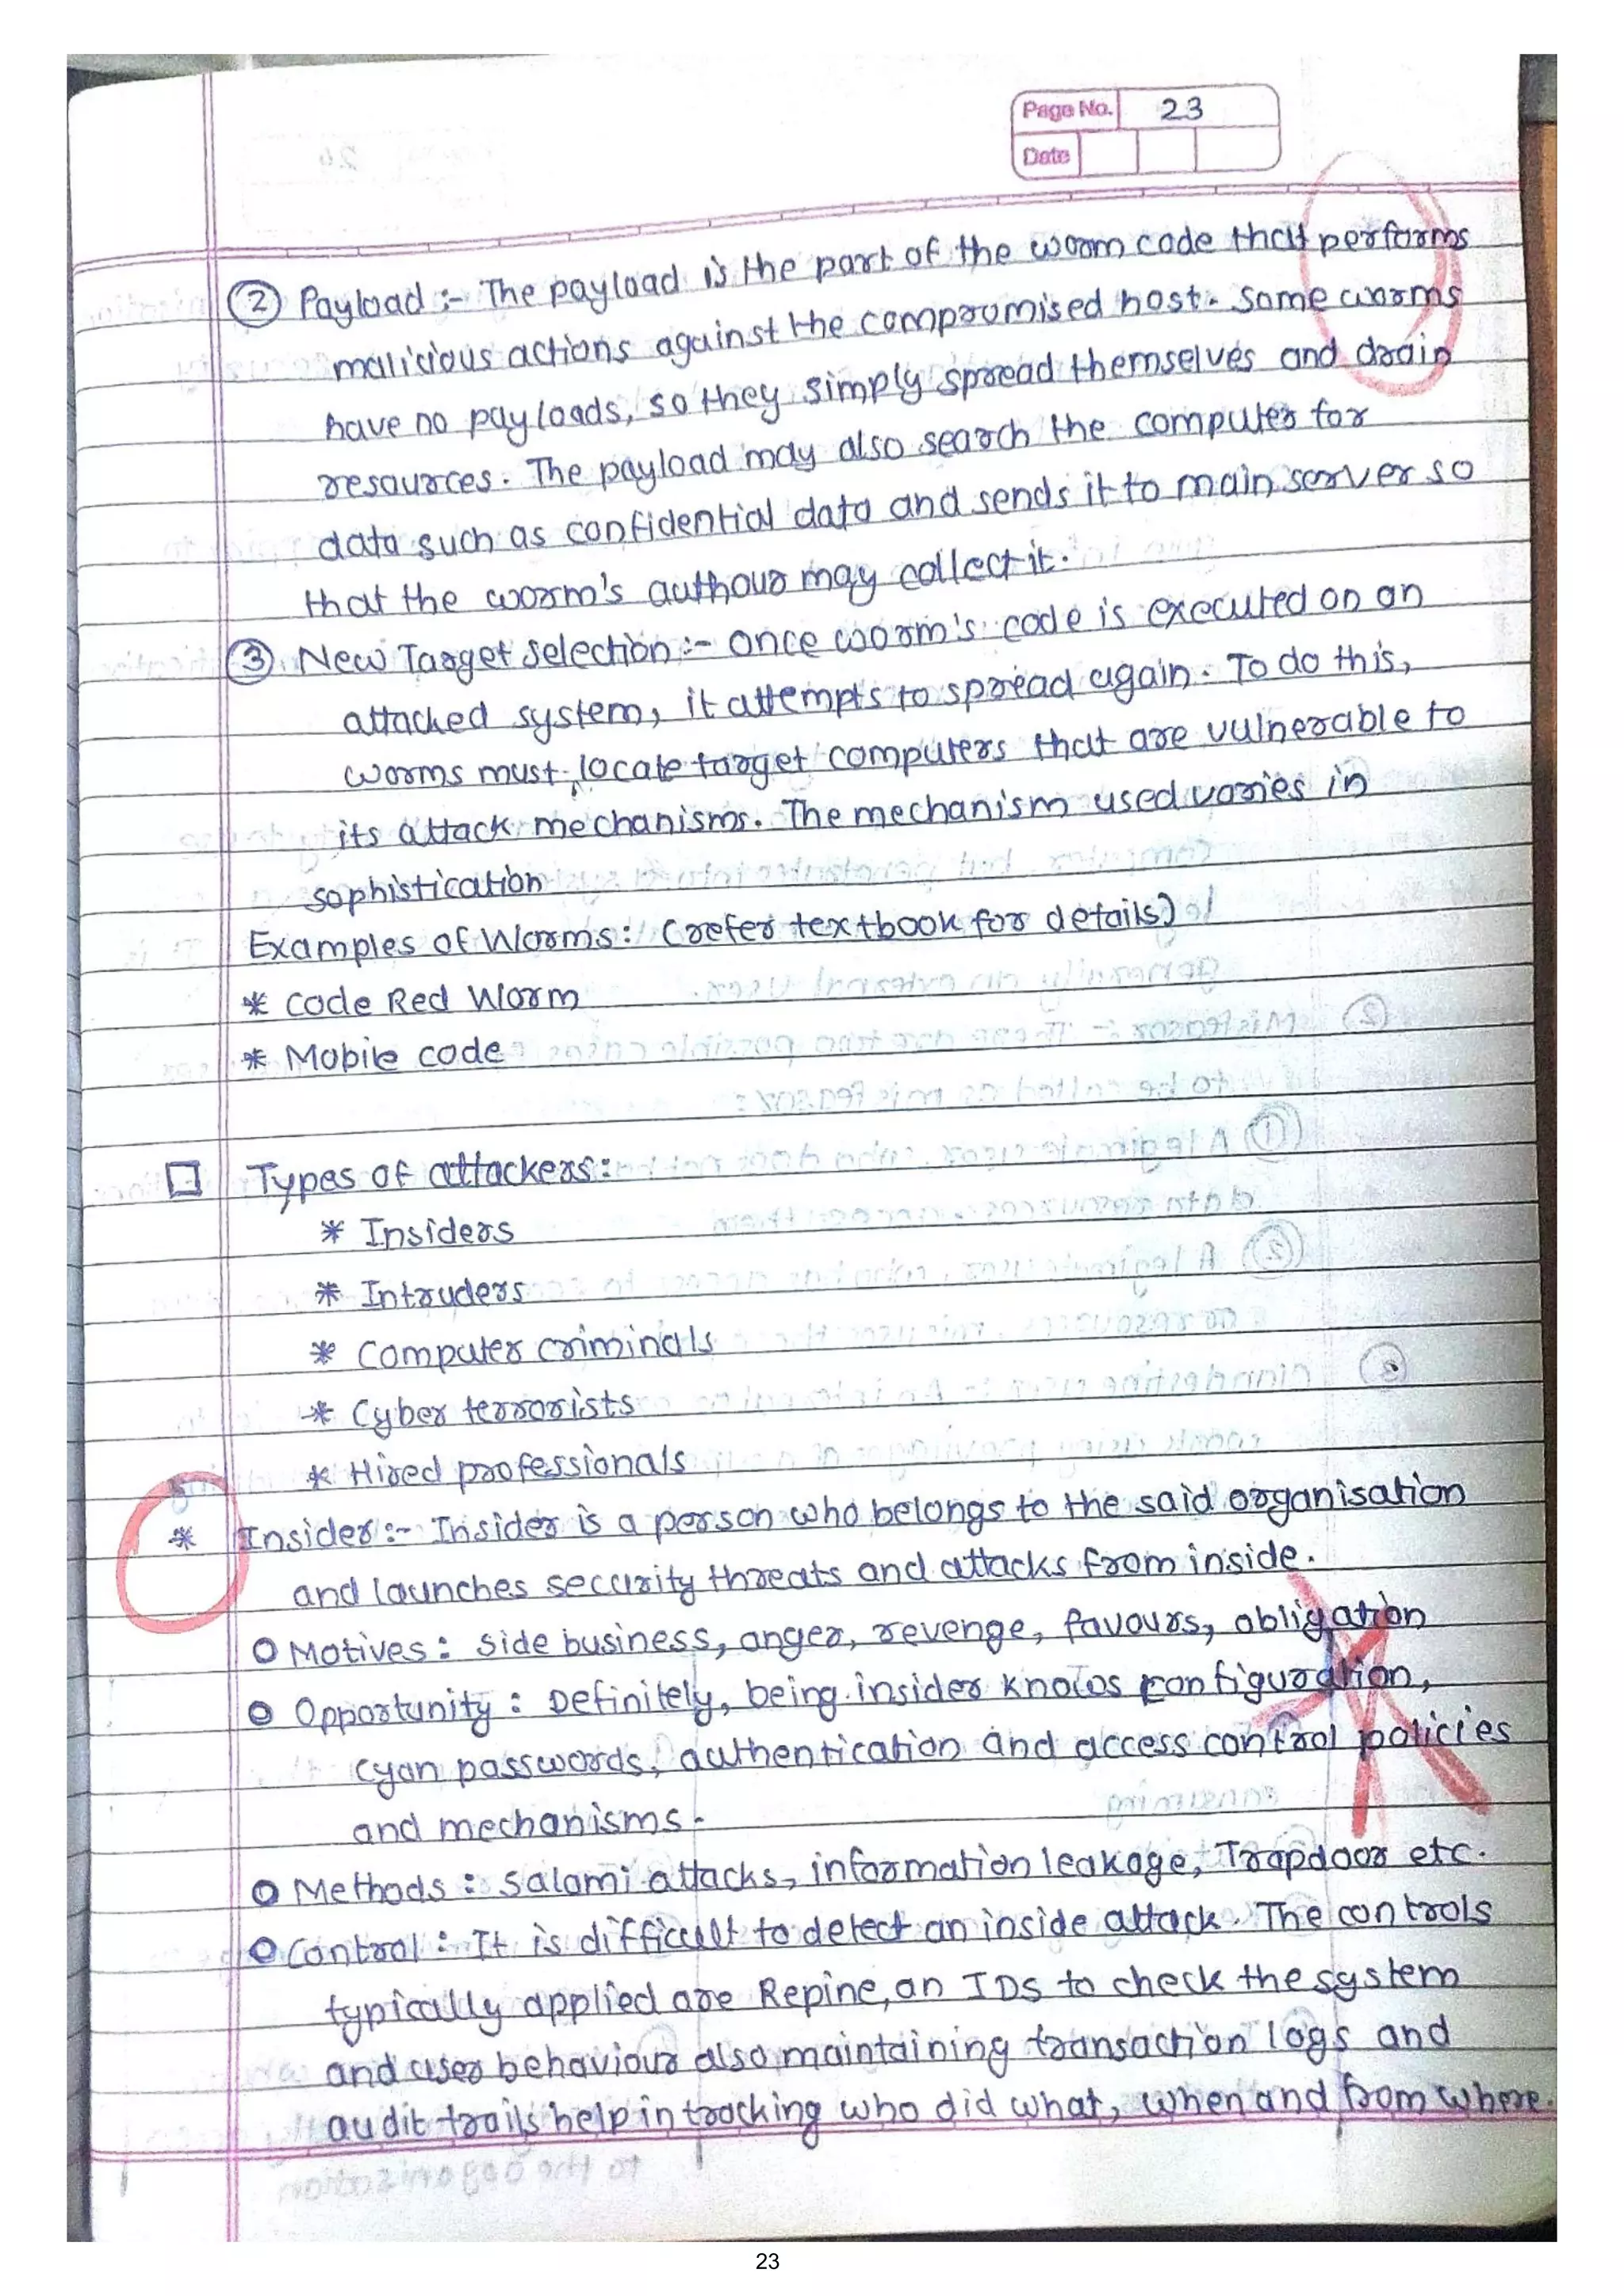 Page No. 23
Date
② Payload :- The payload is the part of the worm code that performs
malicious actions against the compromised host. Some worms
have no payloads, so they simply spread themselves and drain
resources. The payload may also search the computer for
data such as confidential data and sends it to main server so
that the worm's authour may collect it.
③ New Target Selection :- Once worm's code is executed on an
attacked system, it attempts to spread again. To do this,
worms must locate target computers that are vulnerable to
its attack mechanisms. The mechanism used varies in
sophistication
Examples of Worms: (refer textbook for details)
* Code Red Worm
* Mobile code
□ Types of attackers:
* Insiders
* Intruders
* Computer criminals
* Cyber terrorists
* Hired professionals
* Insider :- Insider is a person who belongs to the said organisation
and launches security threats and attacks from inside.
○ Motives : side business, anger, revenge, favours, obligation
○ Opportunity : Definitely, being insider knows configuration,
cyan passwords, authentication and access control policies
and mechanisms.
○ Methods : Salami attacks, information leakage, Trapdoor etc.
○ Control : It is difficult to detect an inside attack. The controls
typically applied are Repine, an IDS to check the system
and user behaviour also maintaining transaction logs and
audit trails help in tracking who did what, when and from where.
23